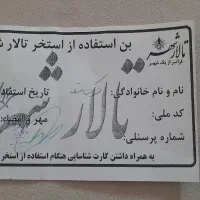 بن استفاده از استخر تالار ش
تالار شهر
فراتر از یک شهر
نام و نام خانوادگی:
تاریخ استفاده
کد ملی:
مهر و امضاء:
شماره پرسنلی:
تالار شهر
به همراه داشتن کارت شناسایی هنگام استفاده از استخر